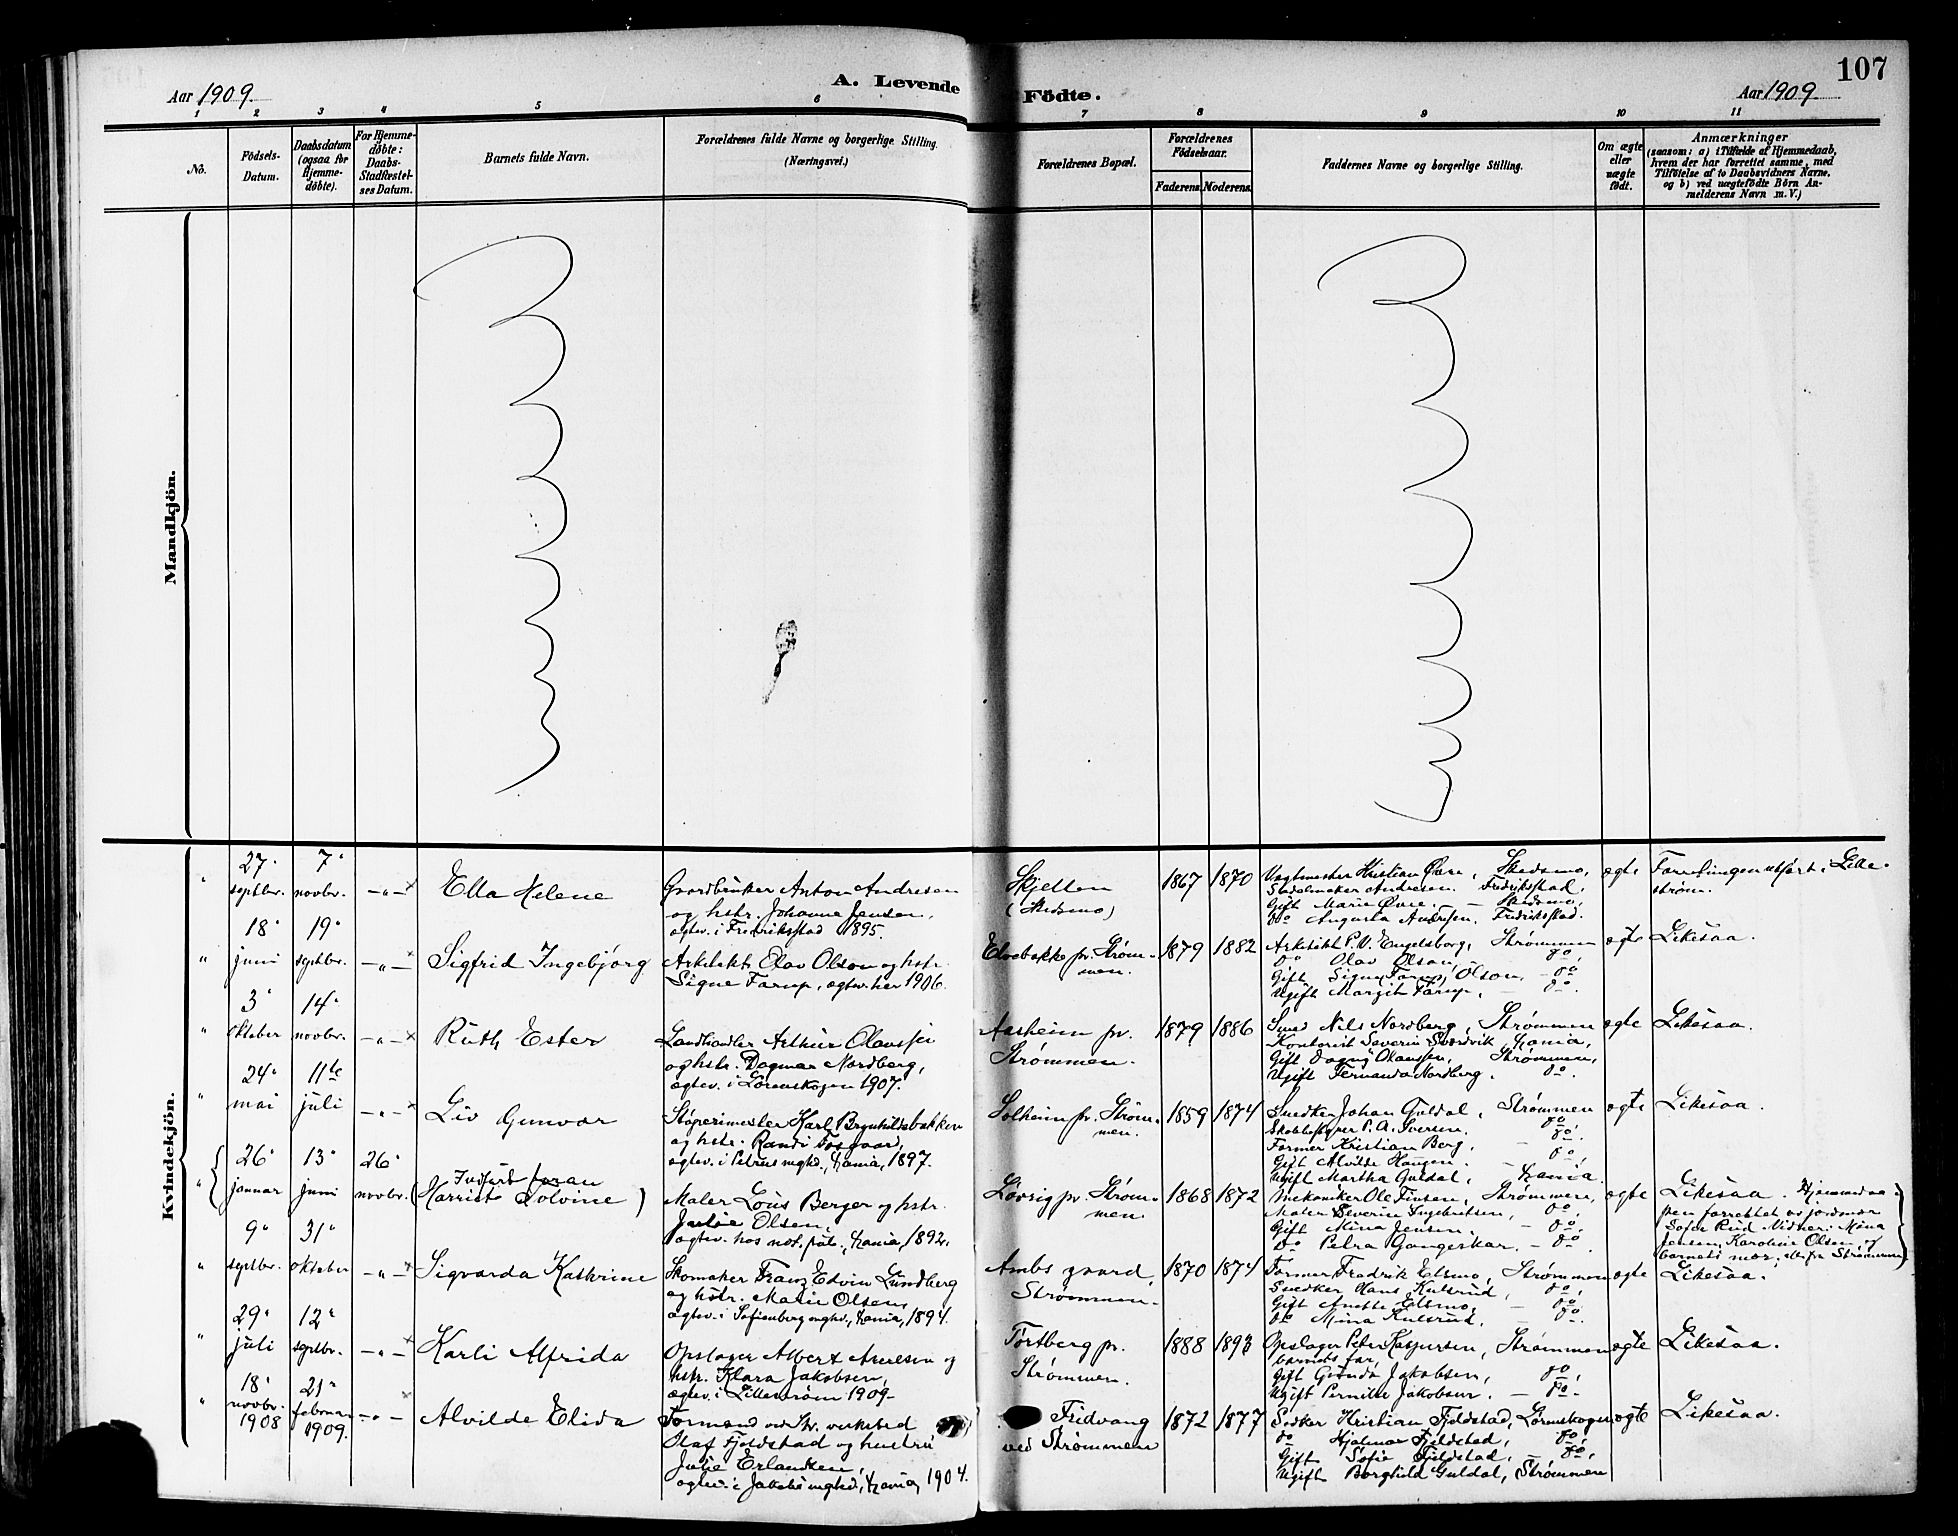 107
Aar 1909.
A. Levende Födte.
Aar 1909.
1 2 3 4 5 6 7 8 9 10 11
No.
Födsels-
Datum.
Daabsdatum
(ogsaa for
Hjemme-
döbte).
For Hjemme-
döbte:
Daabs-
Stadfæstel-
ses Datum.
Barnets fulde Navn.
Forældrenes fulde Navne og borgerlige Stilling.
(Næringsvei.)
Forældrenes Bopæl.
Forældrenes
Födselsaar.
Faderens. Moderens.
Faddernes Navne og borgerlige Stilling.
Om ægte
eller
uægte
födt.
Anmærkninger
(saasom: a) i Tilfælde af Hjemmedaab,
hvem der har forrettet samme, med
Tilföielse af to Daabsvidners Navne,
og b) ved uægtefödte Börn An-
melderens Navn m.V.)
Mandkjön.
Kvindekjön.
" 27. septbr. 7. novbr. -"- Ella Helene
Gaardbruker Anton Andresen
og hstr. Johanne Jensen,
egtev. i Fredriksstad 1895.
Skjetten
(Skedsmo)
1867 1870
Vagtmester Kristian Øvre, Skedsmo,
Sadelmaker Andresen. Fredriksstad,
Gift Marie Øvre. - Skedsmo,
do Augusta Andresen. Fredriksstad.
egte
Forretningen utført i Lille-
strøm.
" 18. juni 19. septbr. -"- Sigfrid Ingebjörg
Arkitekt Olav Olson og hstr.
Signe Farup, egtev. her 1906.
Elvebakke pr. Strøm-
men.
1879 1882
Arkitekt P. V. Engelsborg, Strømmen
do Olav Olson, - do,
Gift Signe Farup Olson, - do
Ugift Margit Farup, - do.
egte
Likesaa.
" 3. oktober 14. novbr. -"- Ruth Ester
Landhandler Arthur Olaussen
og hstr. Dagmar Nordberg,
egtev. i Lørenskogen 1907.
Aasheim pr.
Strømmen.
1879 1886
Smed Nils Nordberg, Strømmen
Kontorist Severin Svardvik, Kania,
Gift Dagny Olaussen, Strømmen,
Ugift Fernanda Nordberg. do.
egte
Likesaa.
" 24. mai 11te juli -"- Liv Gunvor
Støperimester Karl Brynhildsbakken
og hstr. Randi Fosgaard,
egtev. i Petrus mghd., Kania, 1897.
Solheim pr. Strøm-
men.
1859 1874
Snedker Johan Guldal, Strømmen
Skobestyrer P. A. Iversen. do.
Former Kristian Berg, - do,
Gift Alvilde Haugen. -
Ugift Martha Guldal, Kania.
egte
Likesaa.
" 26. januar 13. juni 26. novbr.
Indført foran
(Harriet Solvine)
Maler Louis Berger og hstr.
Julie Olsen,
egtev. hos not. publ., Kania, 1892.
Løvsig pr. Strøm-
men.
1868 1872
Mekaniker Ole Finsen, Strømmen,
Maler Severin Ingebritsen, do,
Gift Mina Jensen. - do
do Petra Gangeskar. - do.
egte
Likesaa. Hjemmedaa-
pen forrettet av jordmor
Sofie Rud. Vidner: Mina
Jensen, Karoline Olsen og
barnets mor, alle fra Strømmen
" 9. septbr. 31. oktober -"- Sigvarda Kathrine
Skomaker Franz Edvin Lundberg
og hstr. Marie Olsen,
egtev. i Sofienberg mghd., Kania, 1894.
Ambs gaard,
Strømmen.
1870 1874
Former Fredrik Elsmo, Strømmen
Snedker Hans Kulsrud, do,
Gift Anette Elsmo, - do.
do Mina Kulsrud, - do.
egte
Likesaa.
" 29. juli 12. septbr. -"- Karli Alfrida
Opslager Albert Arelsen og
hstr. Klara Jakobsen,
egtev. i Lillestrøm 1909.
Tortberg pr.
Strømmen.
1888 1893
Opslager Peter Kaspersen, Strømmen
barnets far,
Gift Gunda Jakobsen, do,
Ugift Pernille Jakobsen. - do.
egte
Likesaa.
" 18. novbr. 1908 21. februar 1909. -"- Alvilde Elida
Formand ved Str. verksted
Olaf Fjeldstad og hustru
Julie Erlandsen,
egtev. i Jakobs mghd., Kania, 1904.
Fridvang
ved Strømmen
1872 1877
Kristian Fjeldstad, Lørenskogen
do Hjalmar Fjeldstad, do,
Gift Sofie Fjeldstad, do.
Ugift Borghild Guldal, Strømmen
egte
Likesaa.